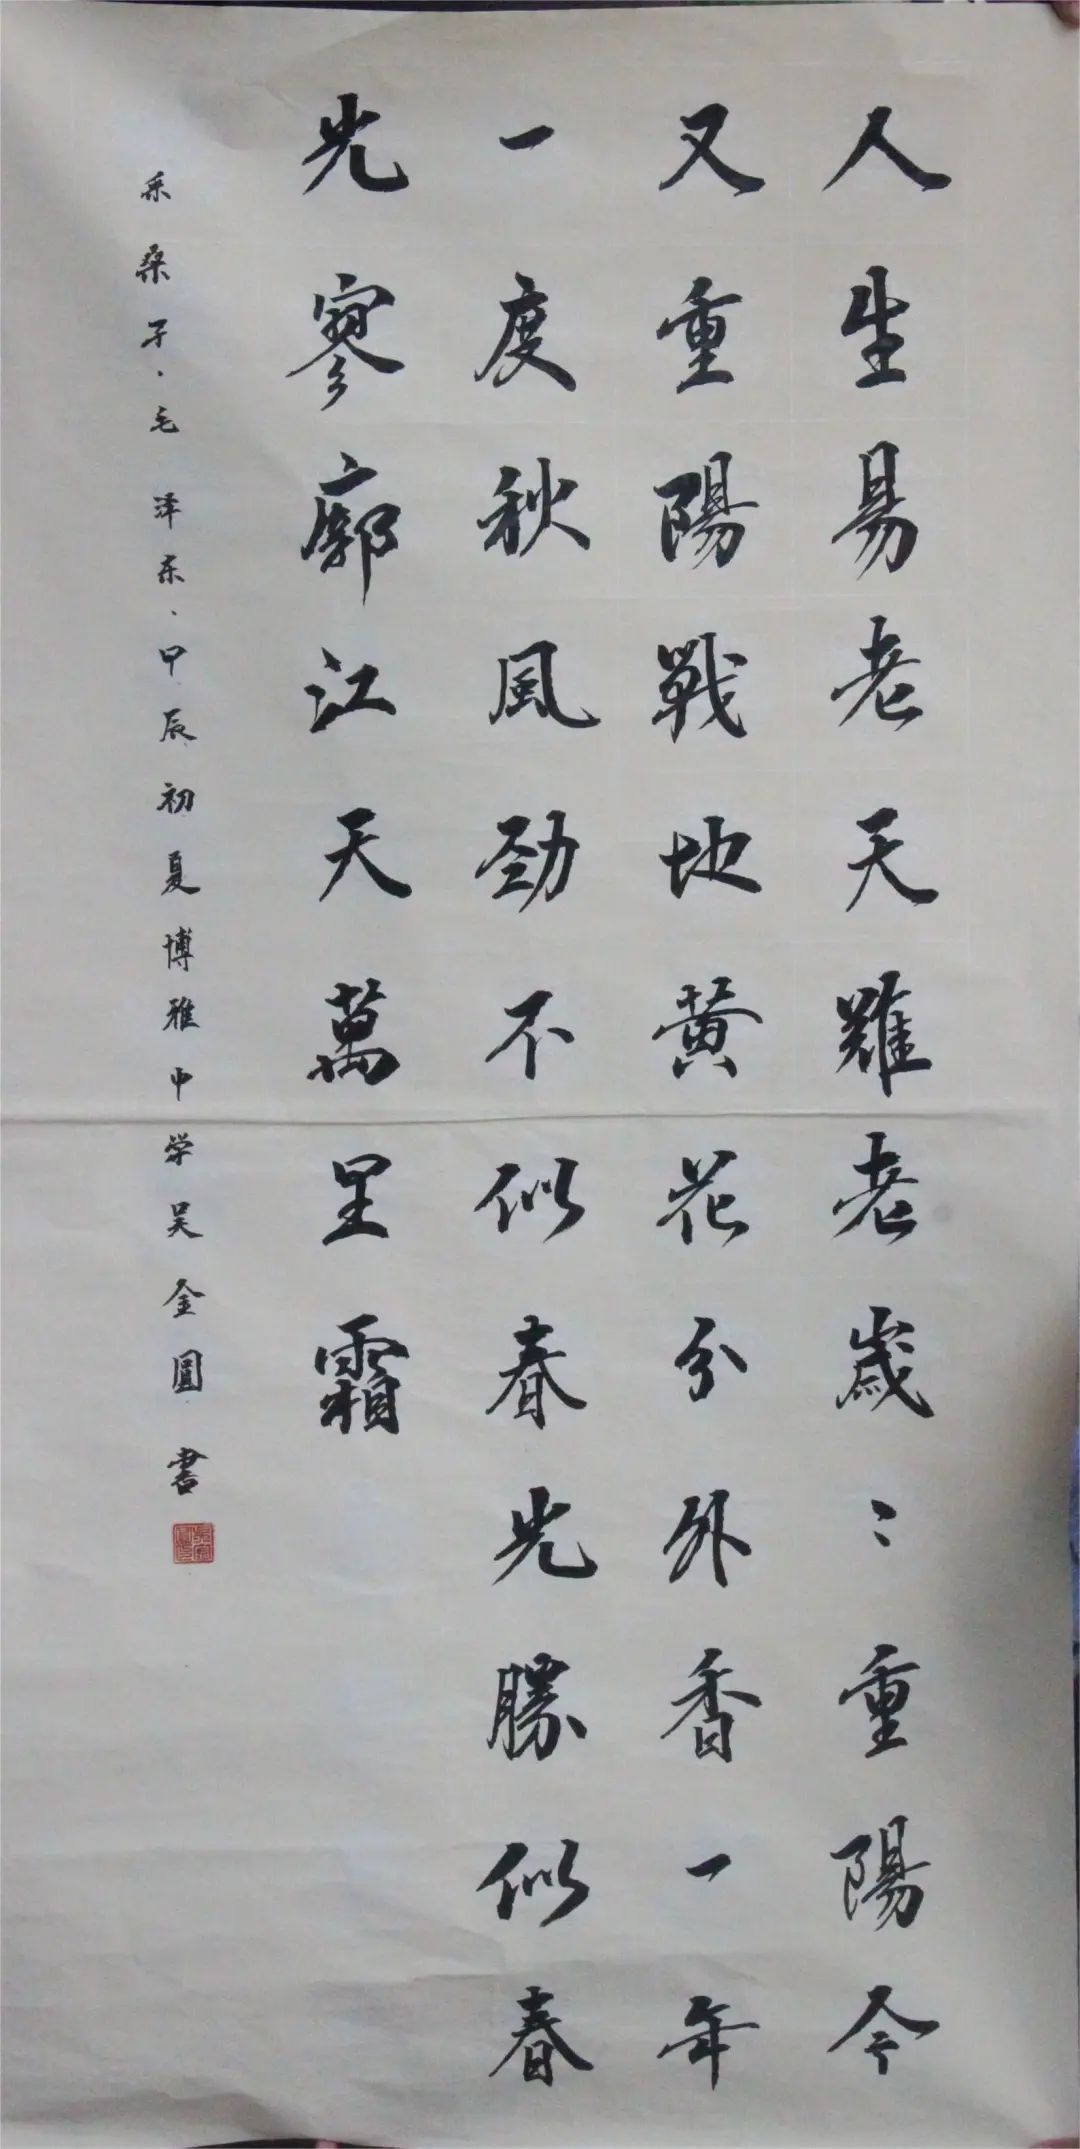 人生易老天難老歲〻重陽今
又重陽戰地黄花分外香一年
一度秋風勁不似春光勝似春
光寥廓江天萬里霜
采桑子·毛泽东、甲辰初夏博雅中学吴金圓書